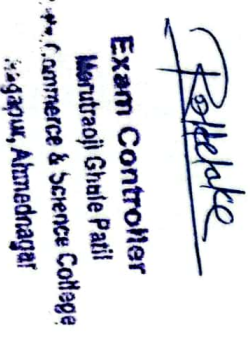 Exam Controller
Marutraoji Ghule Patil
Commerce & Science College
Ahmednagar